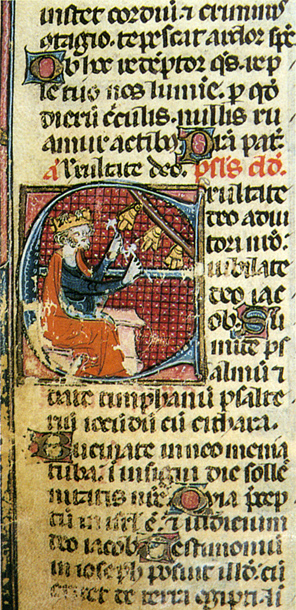 cordiu & criminis
otagio. tepescat ardor
Ob hoc redeptor qs. rep
le tuo nos lumie. p qd
dieru cculis. nullis ru
amur actib; Pra pat.
a Exultate deo. psls
Exultate
deo adiu
tori nro.
Iubilate
deo iac
ob. Su
mite ps
almu &
date timphanu psalte
riu iocudu cu cithara.
Bucinate in neomenia
tuba. i insigni die solle
nitatis nre. Quia pcep
tu in isrl e. & iudicium
deo iacob. Testimoniu
in ioseph posuit illd. cu
exiret de terra egipti